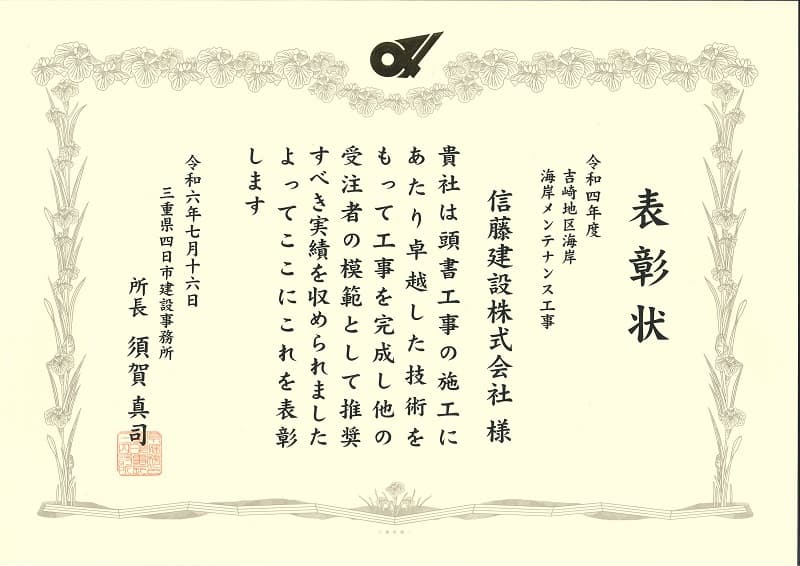 表彰状
令和四年度
吉崎地区海岸
海岸メンテナンス工事
信藤建設株式会社 様
貴社は頭書工事の施工に
あたり卓越した技術を
もって工事を完成し他の
受注者の模範として推奨
すべき実績を収められました
よってここにこれを表彰
します
令和六年七月十六日
三重県四日市建設事務所
所長 須賀 真司